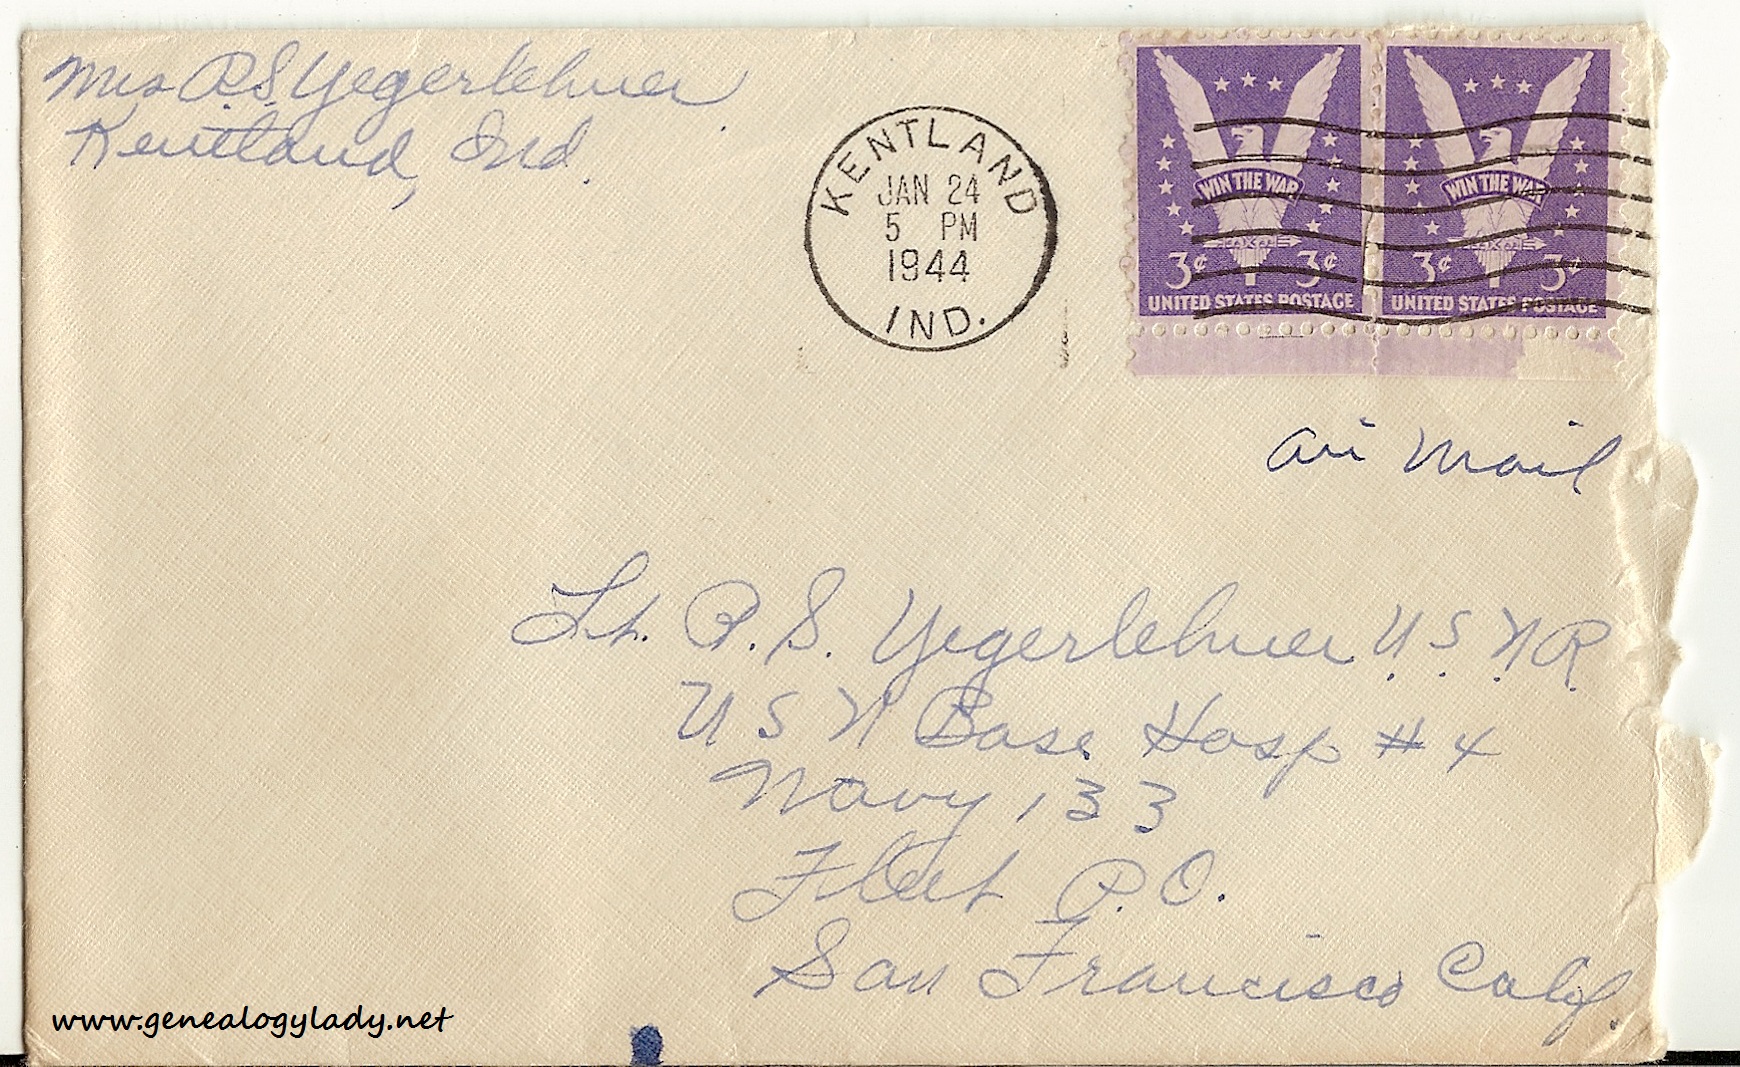 Mrs R.S. Yegerlehner
Kentland, Ind.
KENTLAND
JAN 24
5 PM
1944
IND.
WIN THE WAR
3¢ 3¢
UNITED STATES POSTAGE
WIN THE WAR
3¢ 3¢
UNITED STATES POSTAGE
Air Mail
Lt. R.S. Yegerlehner U.S.N.R.
U S N Base Hosp # 4
Navy 133
Fleet P.O.
San Francisco Calif.
www.genealogylady.net